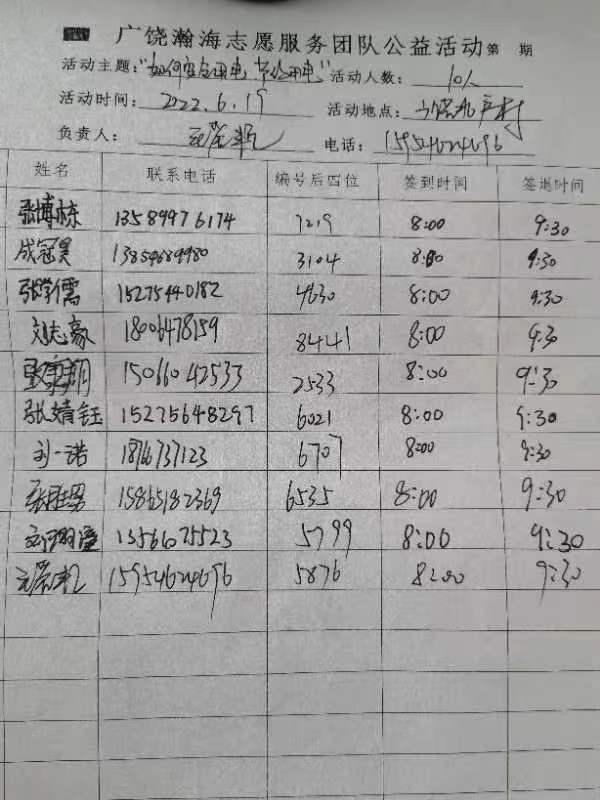 广饶瀚海志愿服务团队公益活动 第 期
活动主题："如何安全用电、节约用电" 活动人数： 10人
活动时间： 2022.6.19 活动地点：
负责人： 电话： 15954624696
姓名 联系电话 编号后四位 签到时间 签退时间
张博栋 13589976174 7219 8:00 9:30
成冠昊 3104 8:00 9:30
张学儒 15275440182 4630 8:00 9:30
刘志豪 18006478159 8441 8:00 9:30
15066042533 2533 8:00 9:30
张婧钰 15275648297 6021 8:00 9:30
刘一诺 18766737123 6707 8:00 9:30
张胜男 15865182369 6535 8:00 9:30
13561675523 5799 8:00 9:30
15954624696 5876 8:00 9:30